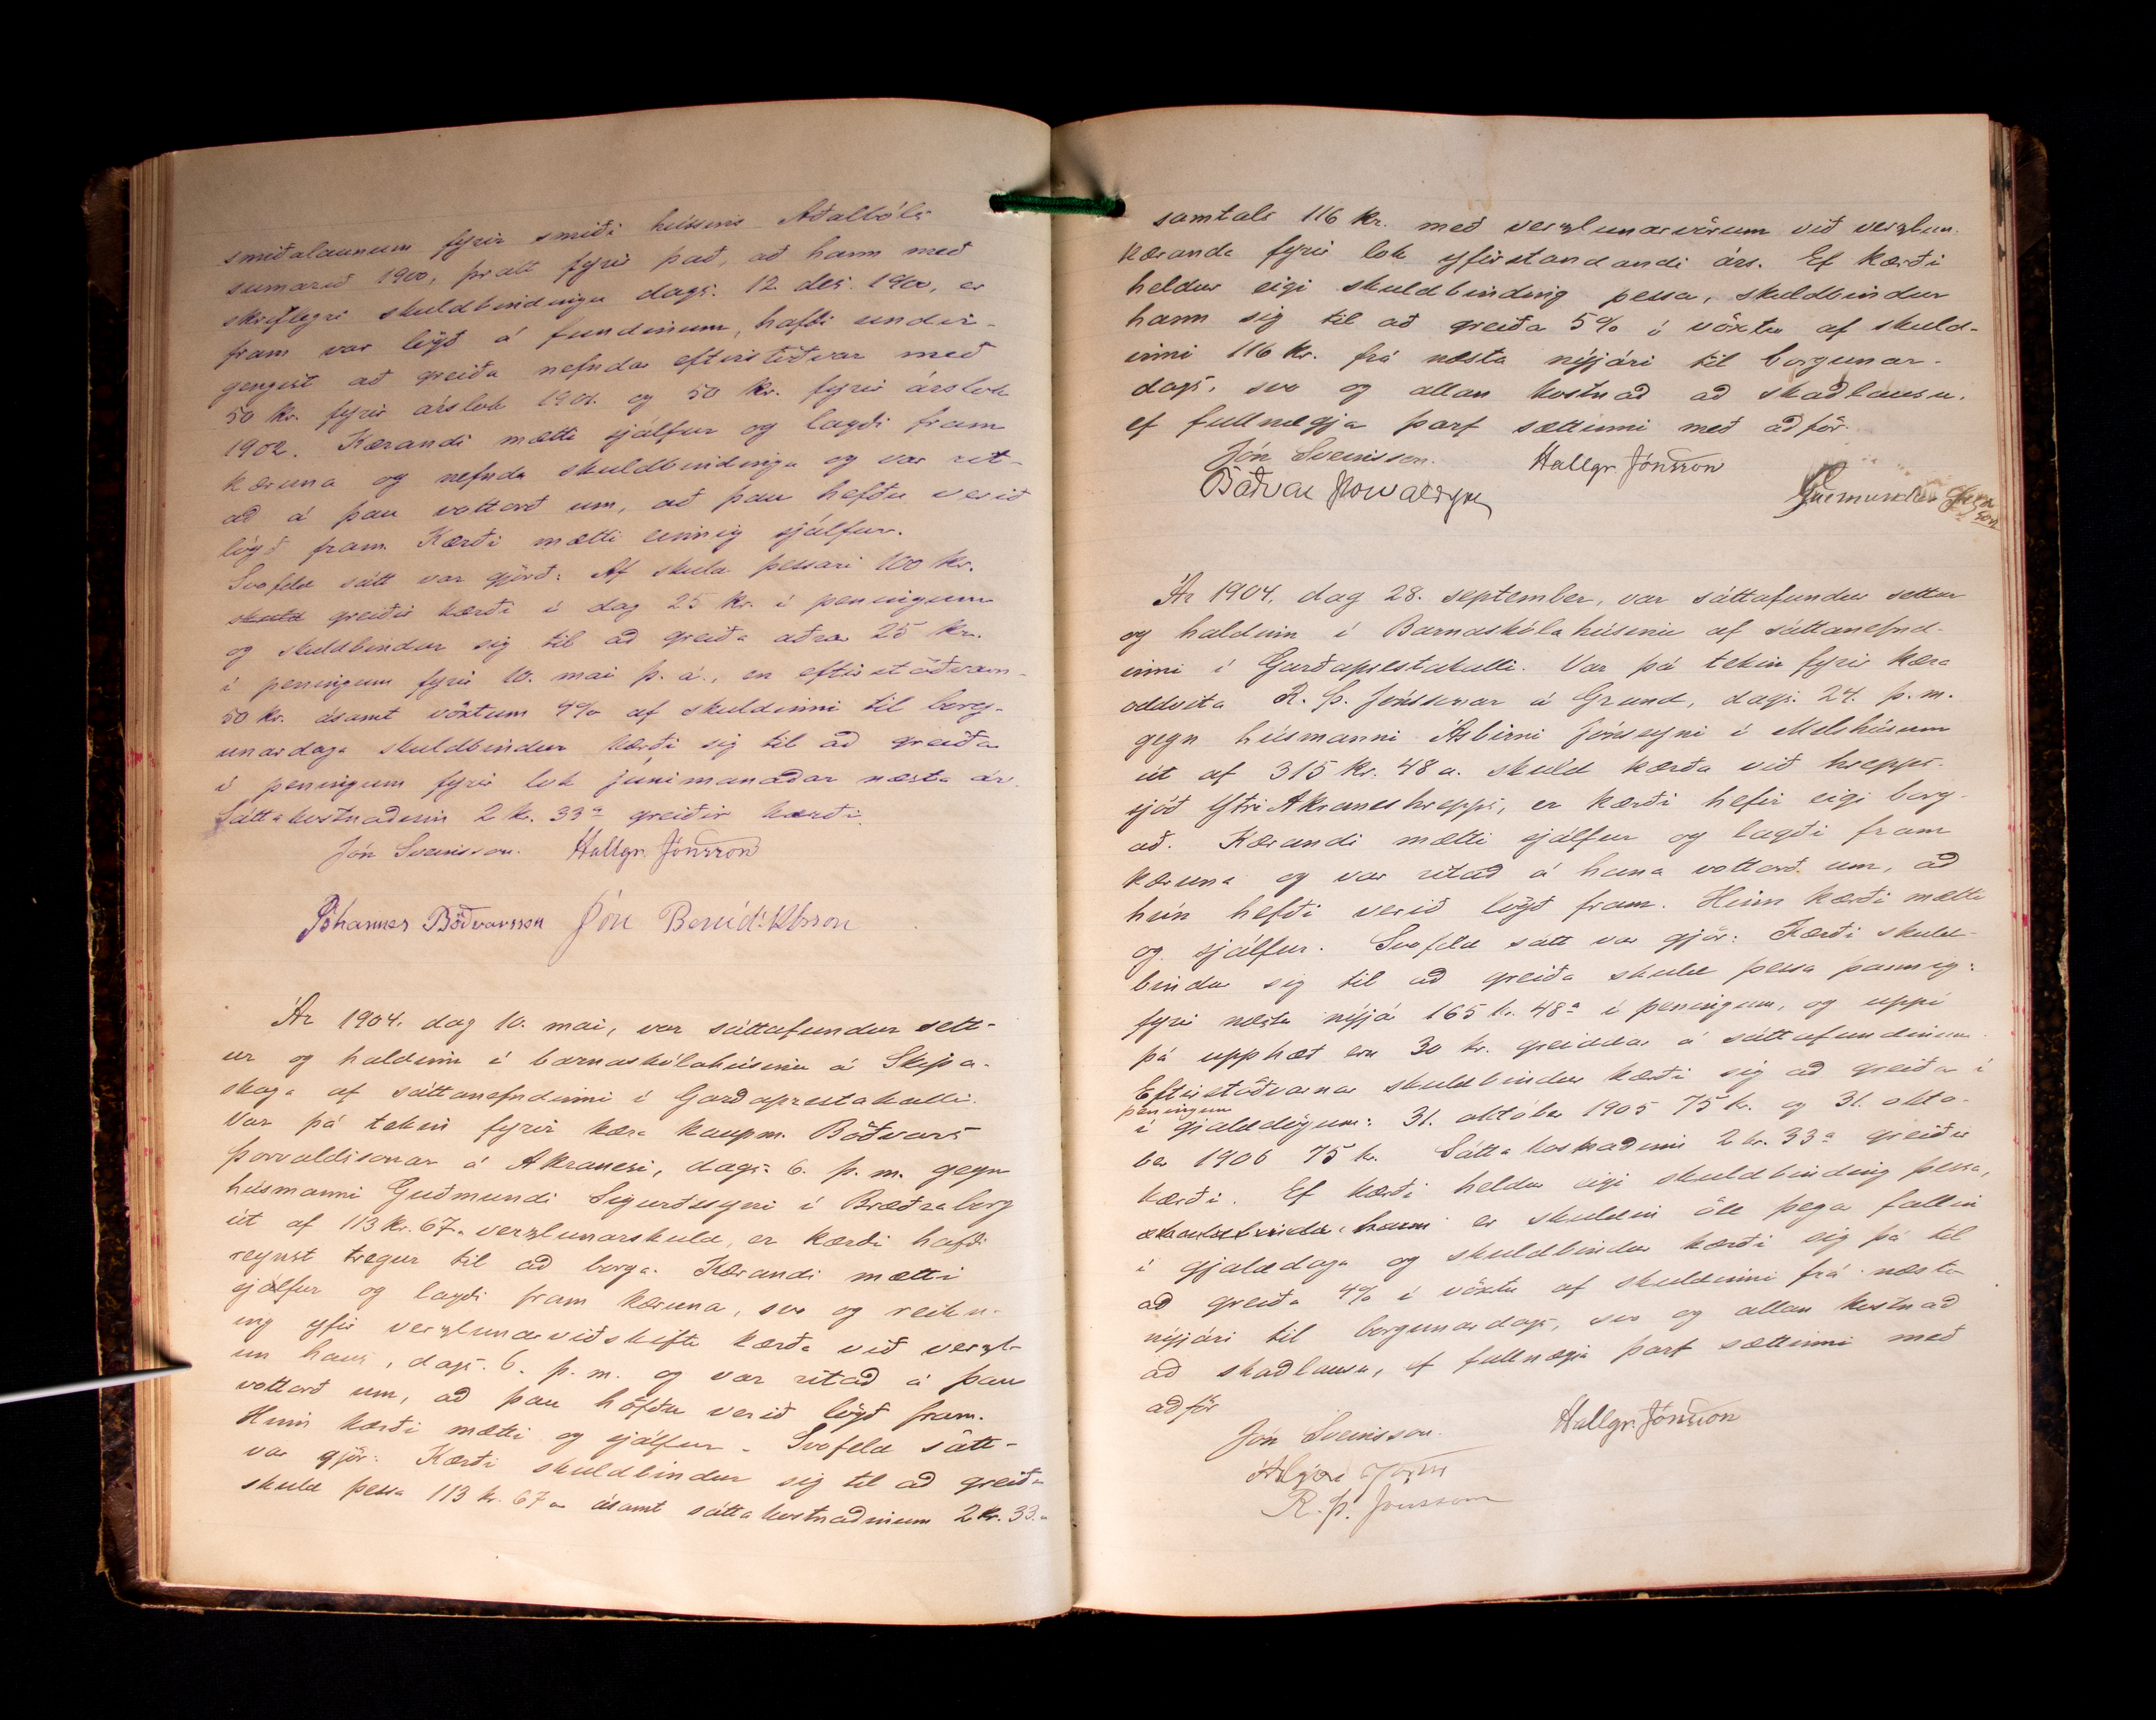 smiðalaunum fyrir smiði hússins Aðalbóls
sumarið 1900, þratt fyrir það, að hann með
skriflegri skuldbindingu dags. 12. des. 1900, er
fram var lögð á fundinum, hafði undir-
gengist að greiða nefndar eftirstöðvar með
50 kr. fyrir árslok 1901. og 50 kr. fyrir árslok
1902. Kærandi mætti sjálfur og lagði fram
kæruna og nefnda skuldbindingu og var rit-
að á þau vottorð um, að þau hefðu verið
lögð fram. Kærði mætti einnig sjálfur.
Svofeld sátt var gjörð: Af skuld þessari 100 kr.
skuld greiðir kærði í dag 25 kr. í peningum
og skuldbindur sig til að greiða aðrar 25 kr.
í peningum fyrir 10. mai þ. á., en eftirstöðvarn-
50 kr. ásamt vöxtum 4% af skuldinni til borg-
unardags skuldbindur kærði sig til að greiða
í peningum fyrir lok júnimánaðar næsta ár.
Sáttakostnaðinn 2 kr. 33 a greiðir kærði.
Jón Sveinsson. Hallgr. Jónsson
Jóhannes Böðvarsson Jón Benidiktsson
Ár 1904. dag 10. mai, var sáttafundur sett-
ur og haldinn í barnaskólahúsinu á Skipa-
skaga af sáttanefndinni í Garðaprestakalli.
Var þá tekin fyrir kæra kaupm. Böðvars
Þorvaldssonar á Akranesi, dags. 6. þ. m. gegn
húsmanni Guðmundi Sigurðssyni í Bræðraborg
út af 113 kr. 67 a verzlunarskuld, er kærði hafði
reynst tregur til að borga. Kærandi mætti
sjálfur og lagði fram kæruna, svo og reikn-
ing yfir verzlunarviðskifti kærða við verzl-
un hans, dags. 6. þ. m. og var ritað á þau
vottorð um, að þau höfðu verið lögð fram.
Hinn kærði mætti og sjálfur. Svofeld sátt
var gjör: Kærði skuldbindur sig til að greiða
skuld þessa 113 kr. 67 a ásamt sáttakostnaðinum 2 kr. 33 a
samtals 116 kr. með verzlunarvörum við verzlun
kæranda fyrir lok yfirstandandi árs. Ef kærði
heldur eigi skuldbinding þessa, skuldbindur
hann sig til að greiða 5% í vöxtu af skuld-
inni 116 kr. frá næsta nýjári til borgunar-
dags, svo og allan kostnað að skaðlausu,
ef fullnægja þarf sættinni með aðför.
Jón Sveinsson. Hallgr. Jónsson
Böðvar Þorvaldsson Guðmundur
Ár 1904, dag 28. september, var sáttafundur settur
og haldinn í Barnaskólahúsinu af sáttanefnd-
inni í Garðaprestakalli. Var þá tekin fyrir kæra
oddvita R. Þ. Jónssonar á Grund, dags. 24. þ. m.
gegn húsmanni Ásbirni Jónssyni í Melshúsum
út af 315 kr. 48 a. skuld kærða við hrepps-
sjóð Ytri Akraneshrepps, er kærði hefir eigi borg-
að. Kærandi mætti sjálfur og lagði fram
kæruna og var ritað á hana vottorð um, að
hún hefði verið lögð fram. Hinn kærði mætti
og sjálfur. Svofeld sátt var gjör: Kærði skuld-
bindur sig til að greiða skuld þessa þannig:
fyrir næsta nýjá 165 kr. 48 a í peningum, og uppí
þá upphæð eru 30 kr. greiddar á sáttafundinum
Eftirstöðvarnar skuldbindur kærði sig að greiða í
peningum
í gjalddögum: 31. október 1905 75 kr. og 31. októ-
ber 1906 75 kr. Sáttakostnaðinn 2 kr. 33 a greiðir
kærði. Ef kærði heldur eigi skuldbinding þessa,
skuldbindur hann er skuldin öll þega fallin
í gjalddaga og skuldbindur kærði sig þá til
að greiða 4% í vöxtu af skuldinni frá næsta
nýjári til borgunardags, svo og allan kostnað
að skaðlausu, ef fullnægja þarf sættinni með
aðför
Jón Sveinsson. Hallgr. Jónsson
R. Þ. Jónsson